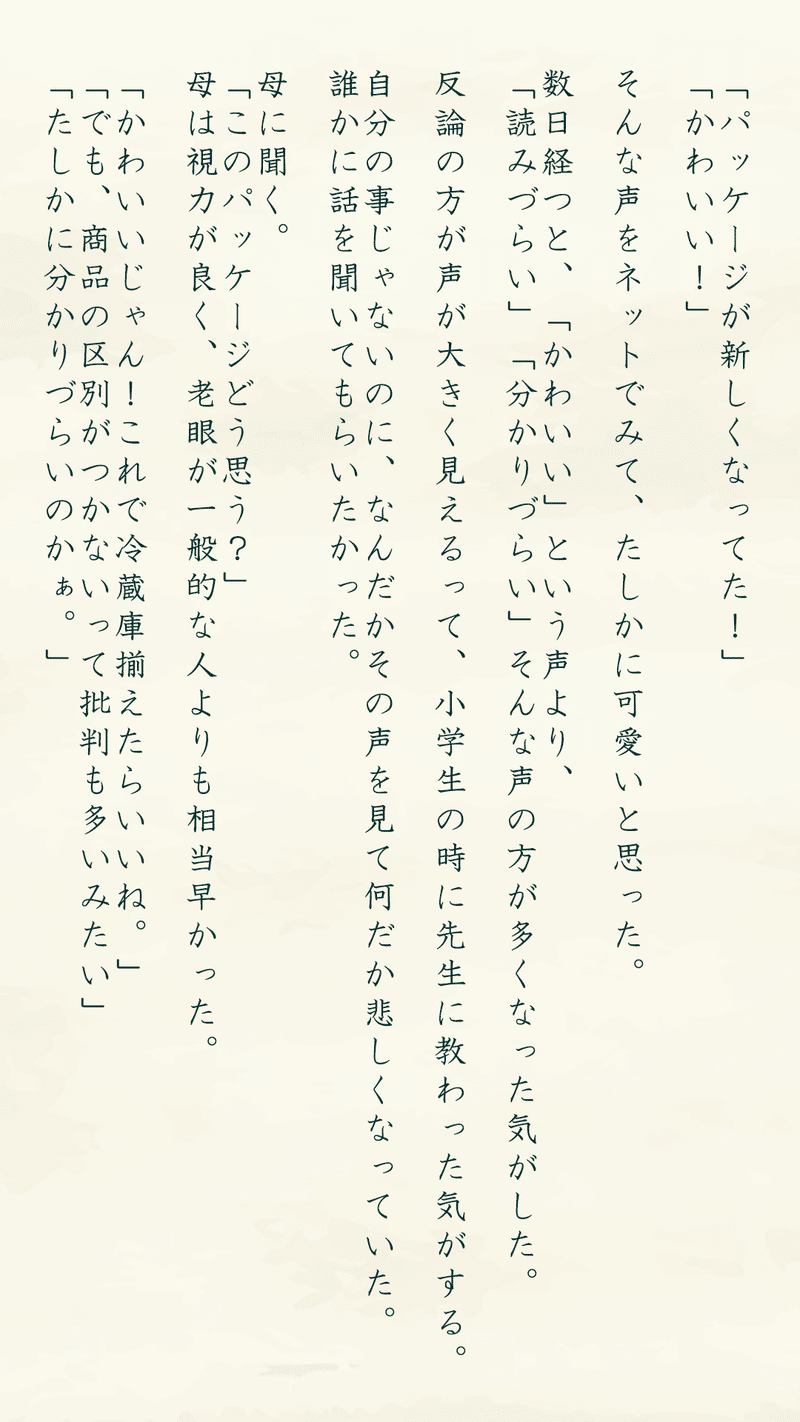 「パッケージが新しくなってた！」
「かわいい！」
そんな声をネットでみて、たしかに可愛いと思った。
数日経つと、「かわいい」という声より、
「読みづらい」「分かりづらい」そんな声の方が多くなった気がした。
反論の方が声が大きく見えるって、小学生の時に先生に教わった気がする。
自分の事じゃないのに、なんだかその声を見て何だか悲しくなっていた。
誰かに話を聞いてもらいたかった。
母に聞く。
「このパッケージどう思う？」
母は視力が良く、老眼が一般的な人よりも相当早かった。
「かわいいじゃん！これで冷蔵庫揃えたらいいね。」
「でも、商品の区別がつかないって批判も多いみたい」
「たしかに分かりづらいのかぁ。」